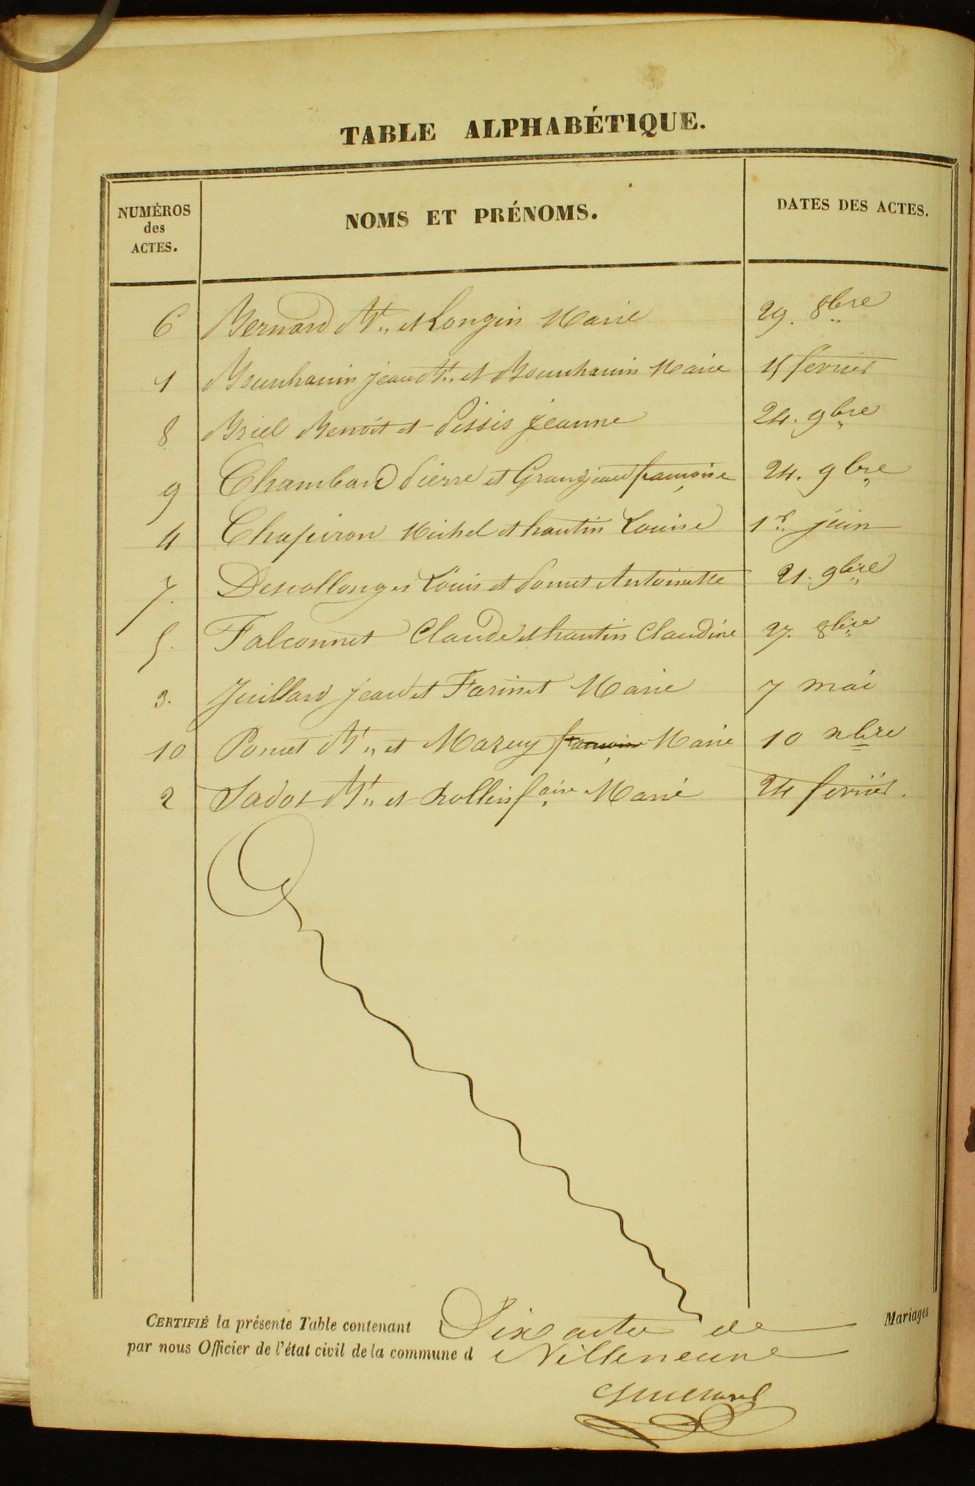 TABLE ALPHABÉTIQUE.
NUMÉROS
des
ACTES.
NOMS ET PRÉNOMS.
DATES DES ACTES.
6 Bernard Bt. et Longin Marie 29. 8bre
1 Jean Bt. et Marie 11 fevrier
8 Briel Benoit et Pissis jeanne 24. 9bre
9 Chambard Pierre et Grangeand françoise 24. 9bre
4 Chapiron Michel et hautin Louise 1er juin
7. Descollonges Louis et Ponset Antoinette 21. 9bre
5. Falconnet Claude et hautin Claudine 27. 8bre
3. Juillard jean et Farinet Marie 7 mai
10 Poncet Bt. et Mazuy françoise Marie 10 xbre
2 Sadot Bt. et Rollin foise Marie 24 fevrier.
CERTIFIÉ la présente Table contenant Dix actes de Mariages
par nous Officier de l'état civil de la commune d Villeneuve